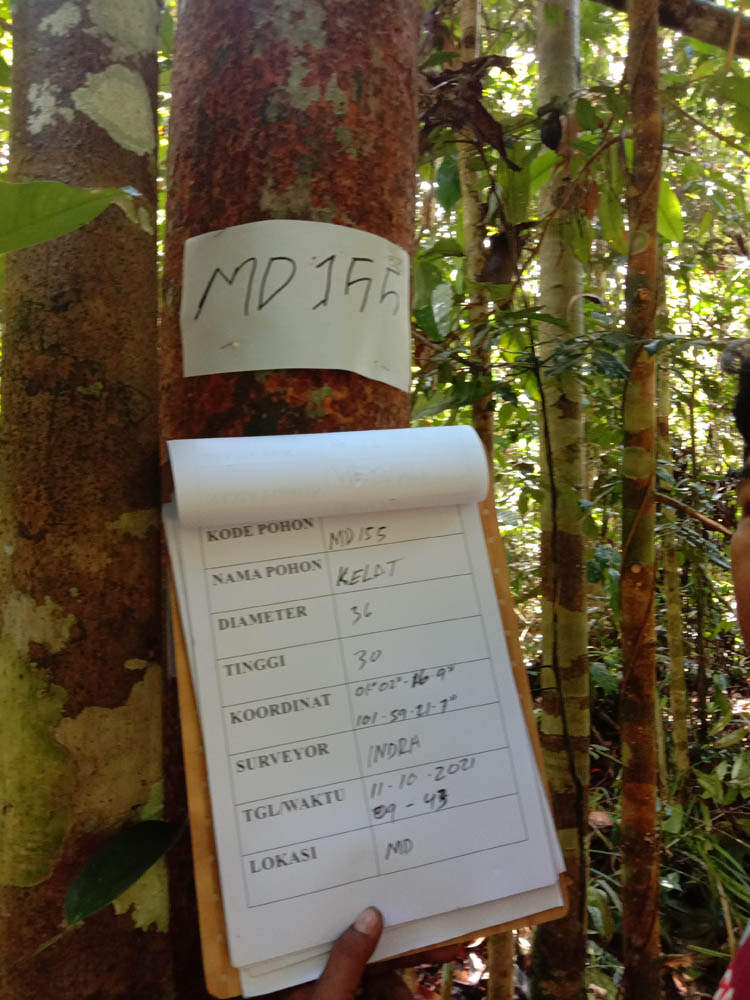 MD 155
KODE POHON MD155
NAMA POHON KELAT
DIAMETER 36
TINGGI 30
KOORDINAT 01°02"-16-9"
101-59-21-7"
SURVEYOR INDRA
TGL/WAKTU 11-10-2021
09-43
LOKASI MD